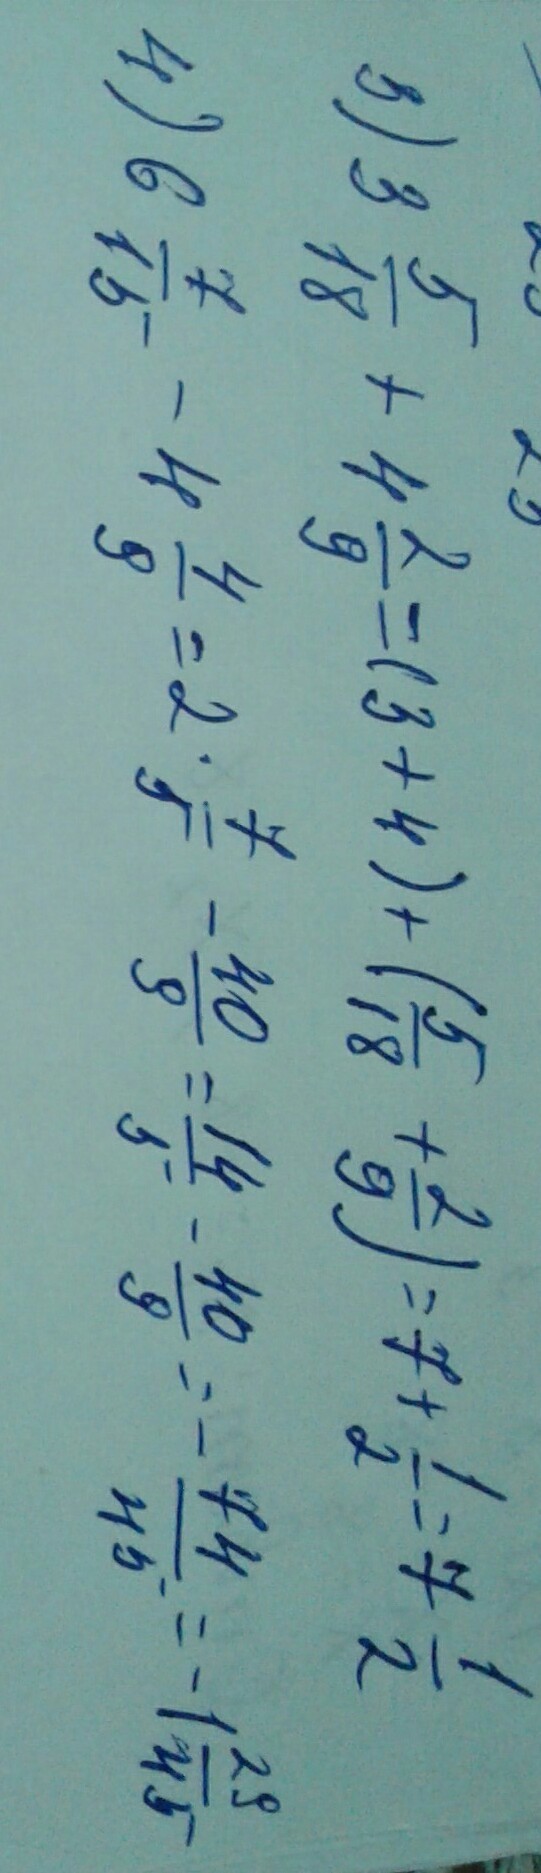 3) 3 5/18 + 4 2/9 = (3 + 4) + (5/18 + 2/9) = 7 + 1/2 = 7 1/2
4) 6 7/15 - 4 4/9 = 2 · 7/5 - 40/9 = 14/5 - 40/9 = - 74/45 = - 1 29/45